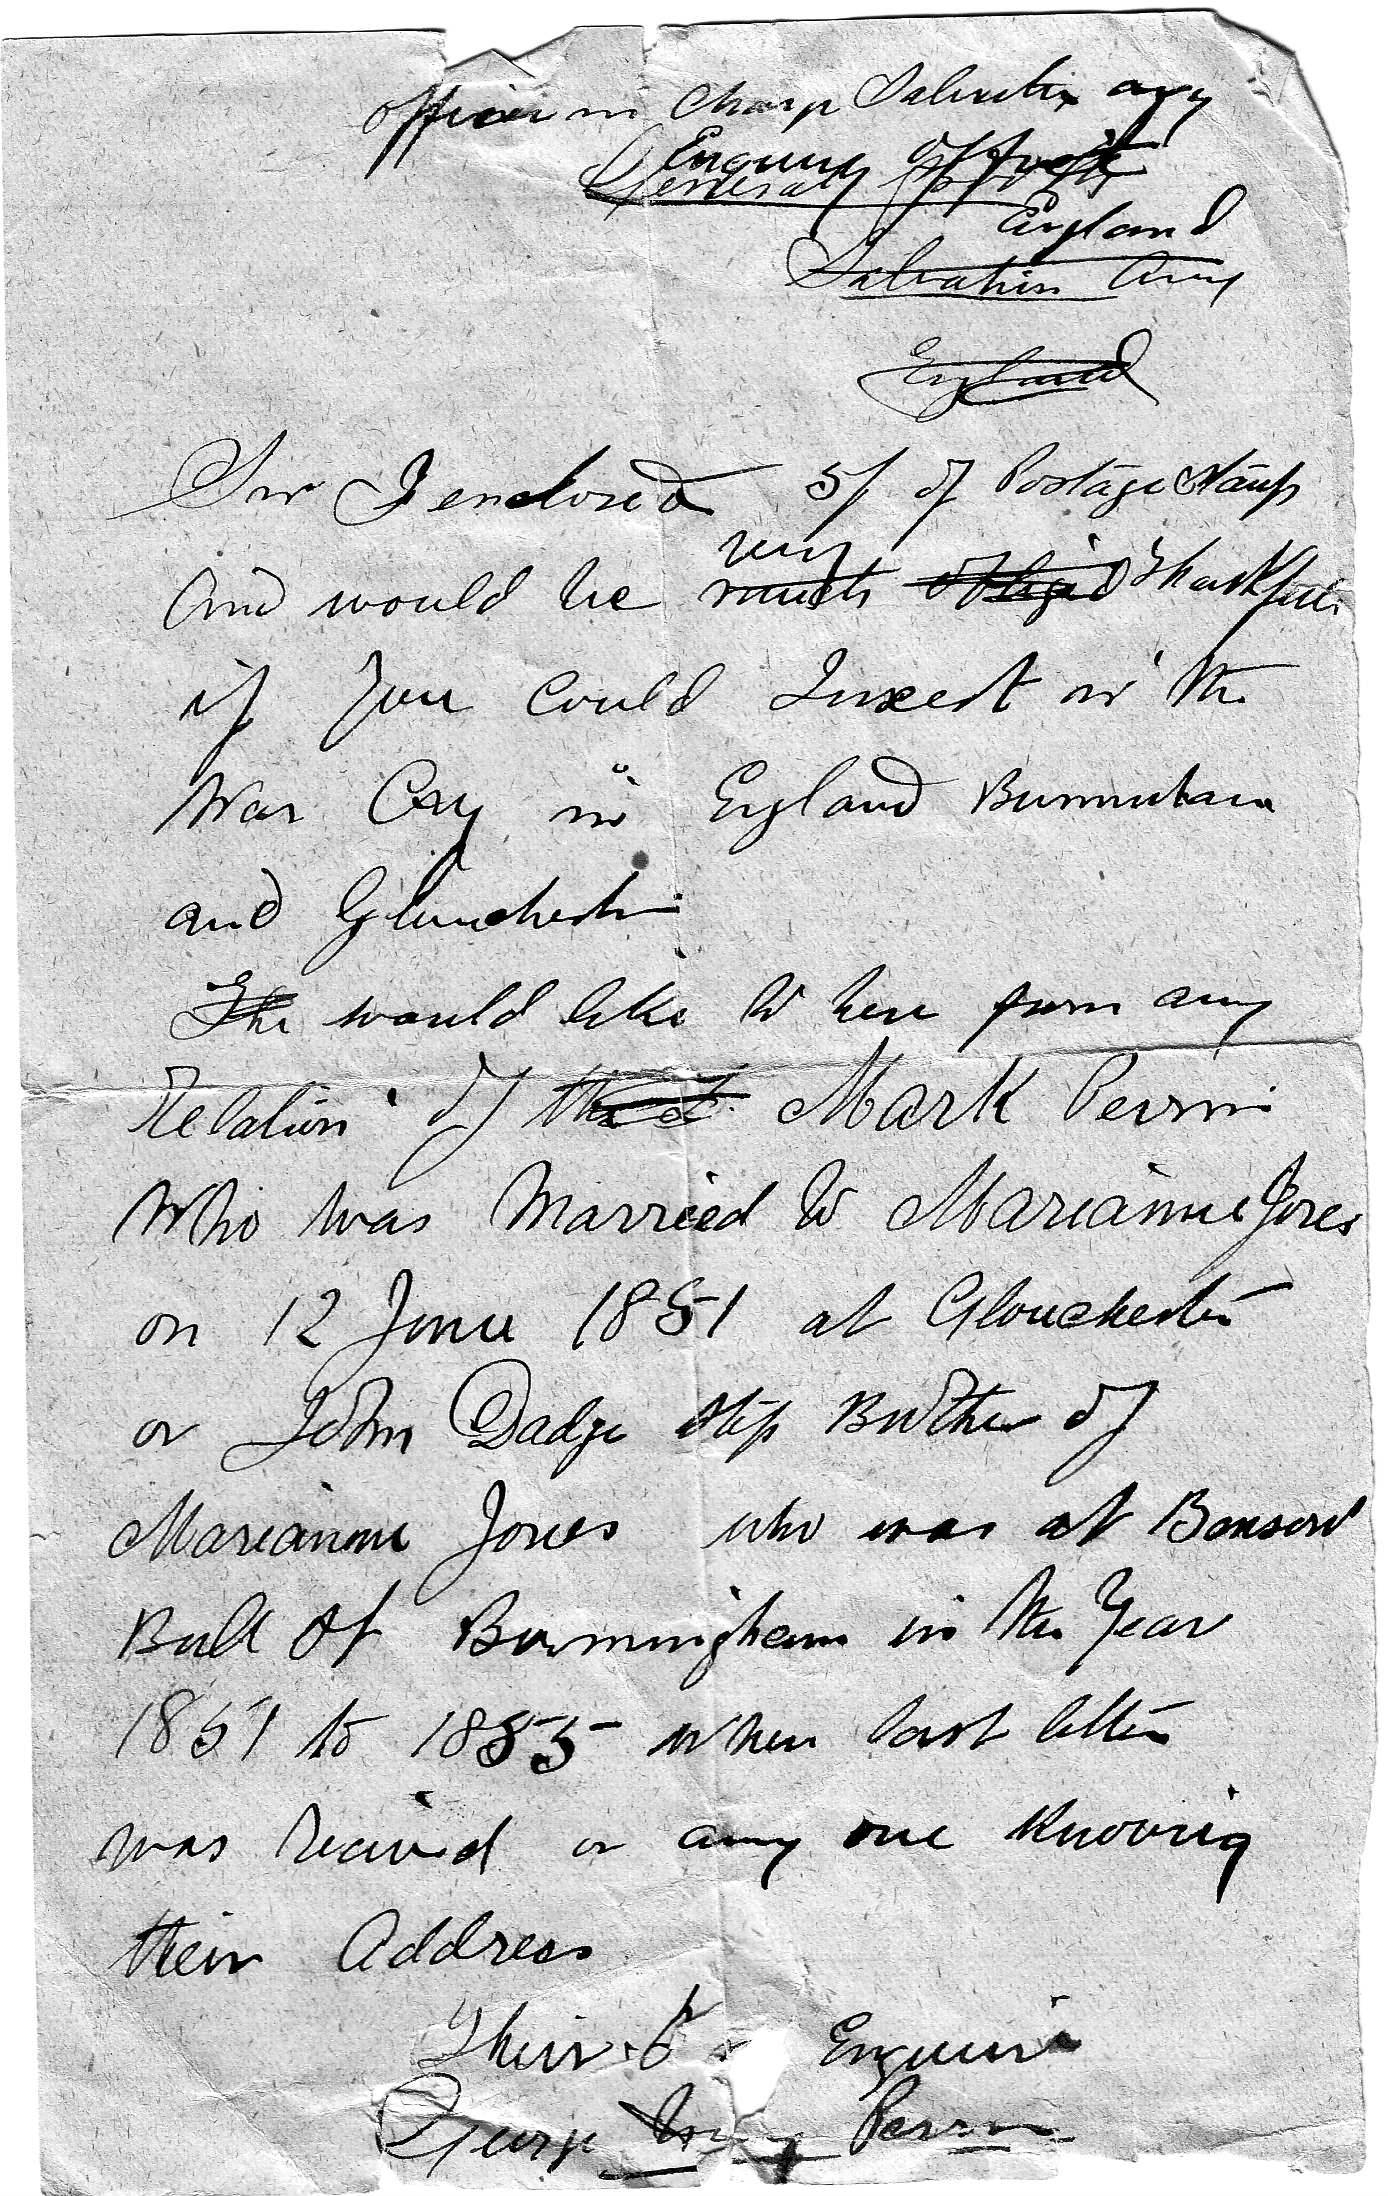 Officer in Charge Salvation Army
Enquiry Office
General Booth
England
Salvation Army
England
Sir I enclosed 5/ of Postage Stamps
very
And would be much obliged Thankfull
if You Could Insert in the
War Cry in England
and Glouchester
The would like to here from any
Relation of the Mark Perrin
Who was Married to Marianne Jones
on 12 June 1851 at Glouchester
or John Dadge Step Brother of
Marianne Jones who was at
Bull St Burmingham in the Year
1851 to 1855 when last letter
was recived or any one Knowing
their Address
Their Enquirie
George Perrin